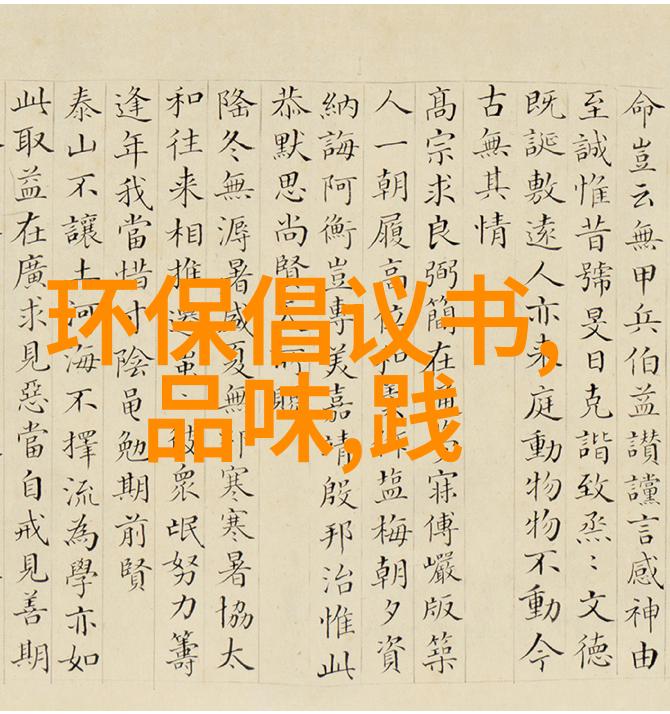 环保倡议书,
品味,践
命豈云無甲兵伯益讃讜言感神由
至誠惟昔號旻日克諧致烝〻文德
既誕敷遠人亦来庭動物物不動今
古無其情
高宗求良弼簡在寐傅巖版築
人一朝履高位塩梅朝夕資
納誨阿衡豈專美嘉靖殷邦治惟此
恭默思尚賢
隆冬無溽暑盛夏無寒寒暑協太
和往来相推遷彼衆氓努力籌
逢年我當惜寸陰黽勉期前賢
泰山不讓土河海不擇流為學亦如
此取益在廣求見惡當自戒見善期